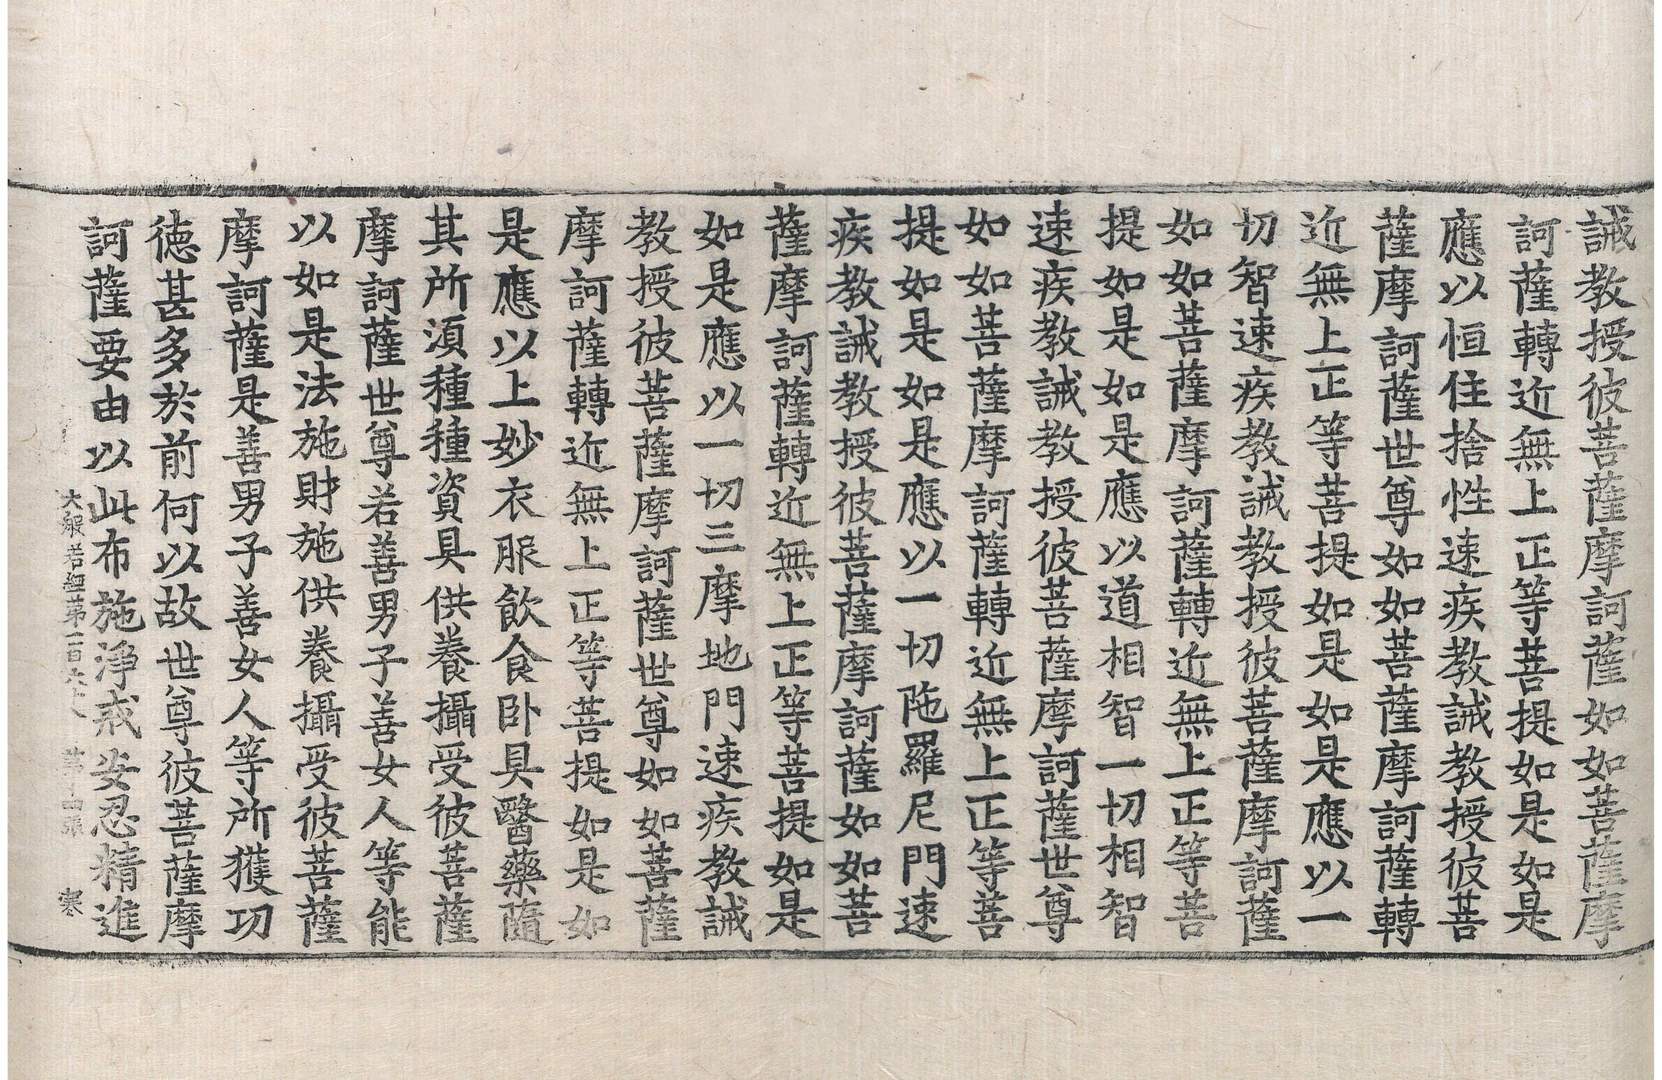 誡教授彼菩薩摩訶薩如如菩薩摩
訶薩轉近無上正等菩提如是如是
應以恒住捨性速疾教誡教授彼菩
薩摩訶薩世尊如如菩薩摩訶薩轉
近無上正等菩提如是如是應以一
切智速疾教誡教授彼菩薩摩訶薩
如如菩薩摩訶薩轉近無上正等菩
提如是如是應以道相智一切相智
速疾教誡教授彼菩薩摩訶薩世尊
如如菩薩摩訶薩轉近無上正等菩
提如是如是應以一切陁羅尼門速
疾教誡教授彼菩薩摩訶薩如如菩
薩摩訶薩轉近無上正等菩提如是
如是應以一切三摩地門速疾教誡
教授彼菩薩摩訶薩世尊如如菩薩
摩訶薩轉近無上正等菩提如是如
是應以上妙衣服飲食卧具醫藥隨
其所須種種資具供養攝受彼菩薩
摩訶薩世尊若善男子善女人等能
以如是法施財施供養攝受彼菩薩
摩訶薩是善男子善女人等所獲功
德甚多於前何以故世尊彼菩薩摩
訶薩要由以此布施淨戒安忍精進
大般若經第一百六十八 第十四張 寒